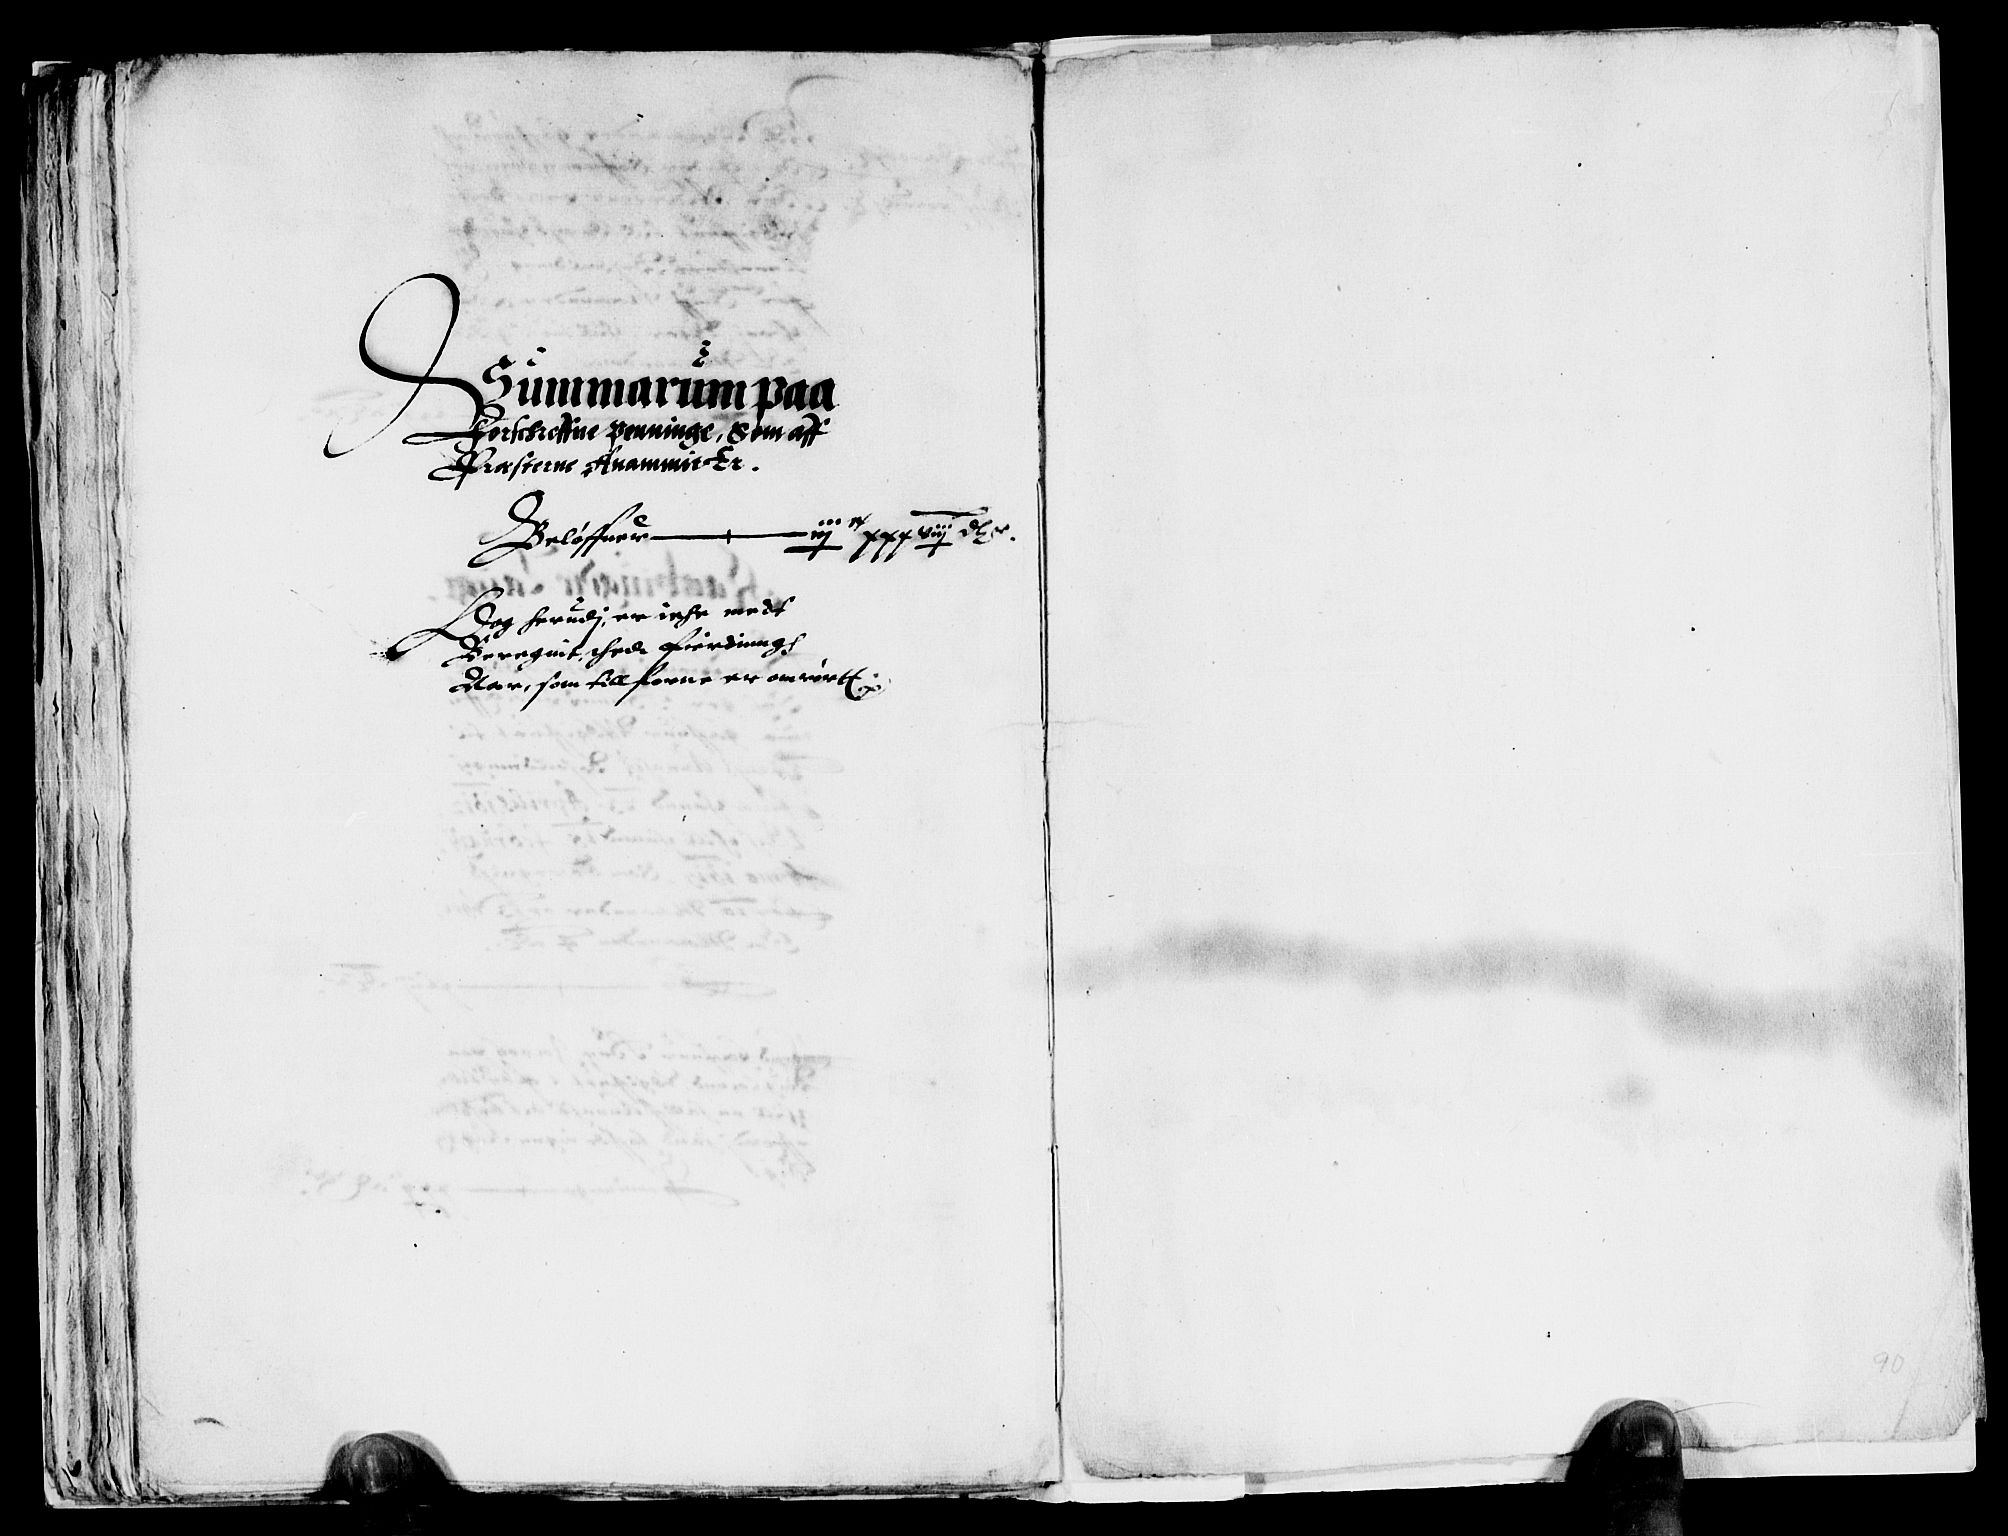 Summarum paa
Forschreffne penninge, Som aff
Præsterne Anammit Er.
Beløffuer — iij xxxviij dlr.
Dog herudj, er iche medt
Beregnit, thede Fierdinngs
Aar, som till forne er omrørtt
90